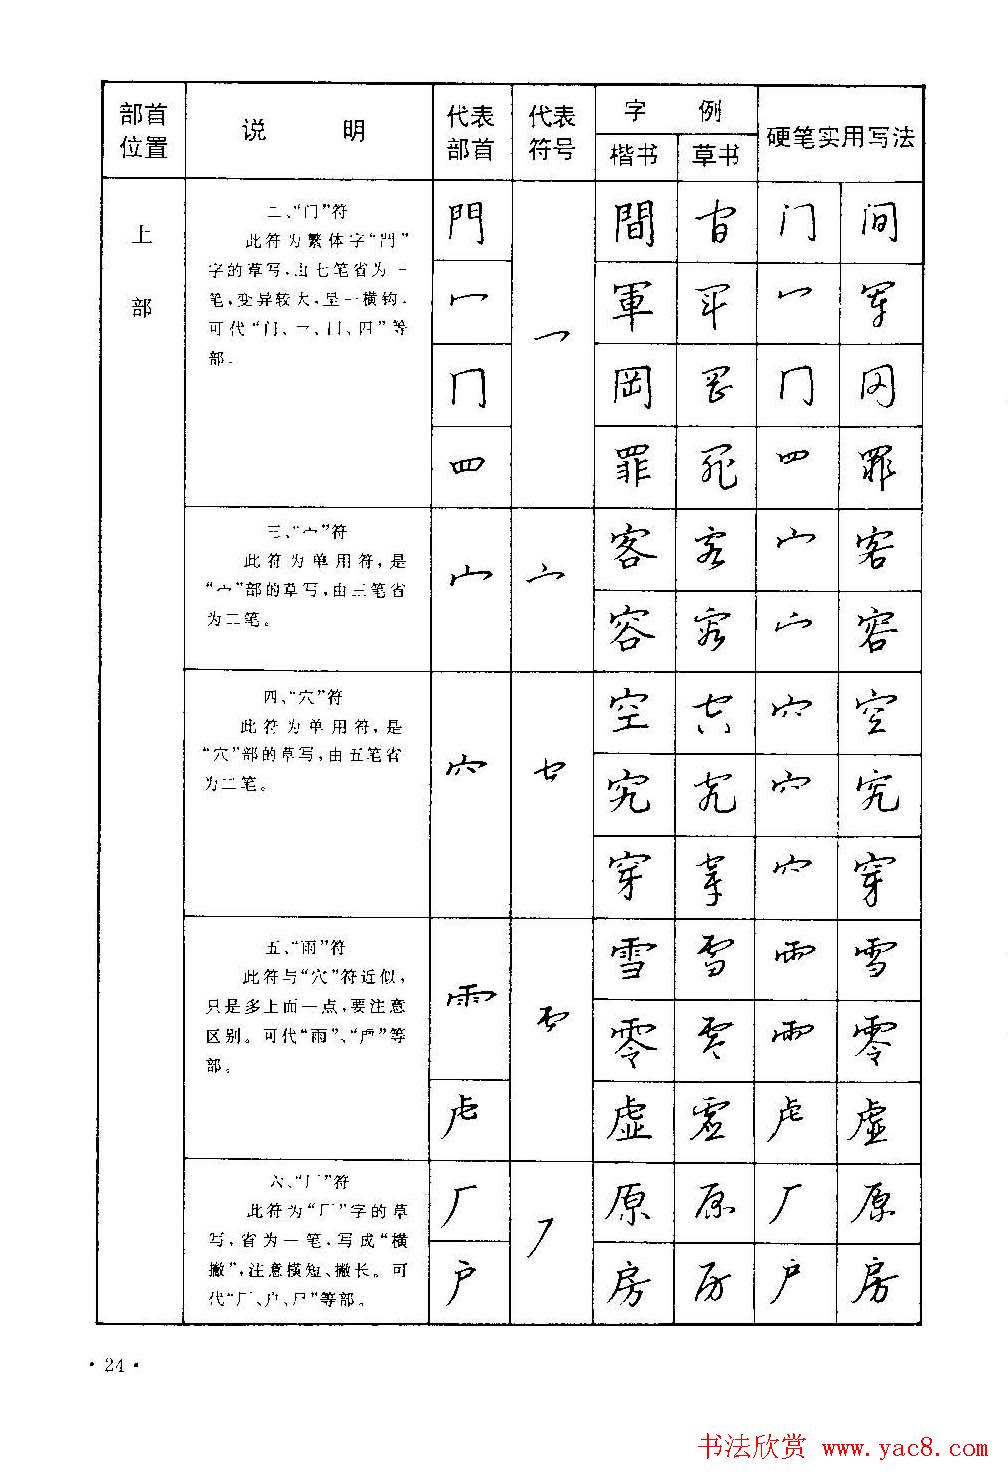 部首位置 说 明 代表部首 代表符号 字 例 硬笔实用写法
楷书 草书
上部
二、“门”符
此符为繁体字“門”
字的草写,由七笔省为一
笔,变异较大,呈一横钩.
可代“门、冖、冂、四”等
部.
門 間 门 间
冖 軍 冖 军
冂 岡 冂 冈
四 罪 四 罪
三、“宀”符
此符为单用符,是
“宀”部的草写,由三笔省
为二笔。
宀 客 宀 客
容 宀 容
四、“穴”符
此符为单用符,是
“穴”部的草写,由五笔省
为二笔。
穴 空 穴 空
究 穴 究
穿 穴 穿
五、“雨”符
此符与“穴”符近似,
只是多上面一点,要注意
区别。可代“雨”、“虍”等
部。
雨 雪 雨 雪
零 雨 零
虍 虚 虍 虚
六、“厂”符
此符为“厂”字的草
写,省为一笔,写成“横
撇”,注意横短、撇长。可
代“厂、户、尸”等部。
厂 原 原 厂 原
户 房 房 户 房
·24·
书法欣赏 www.yac8.com